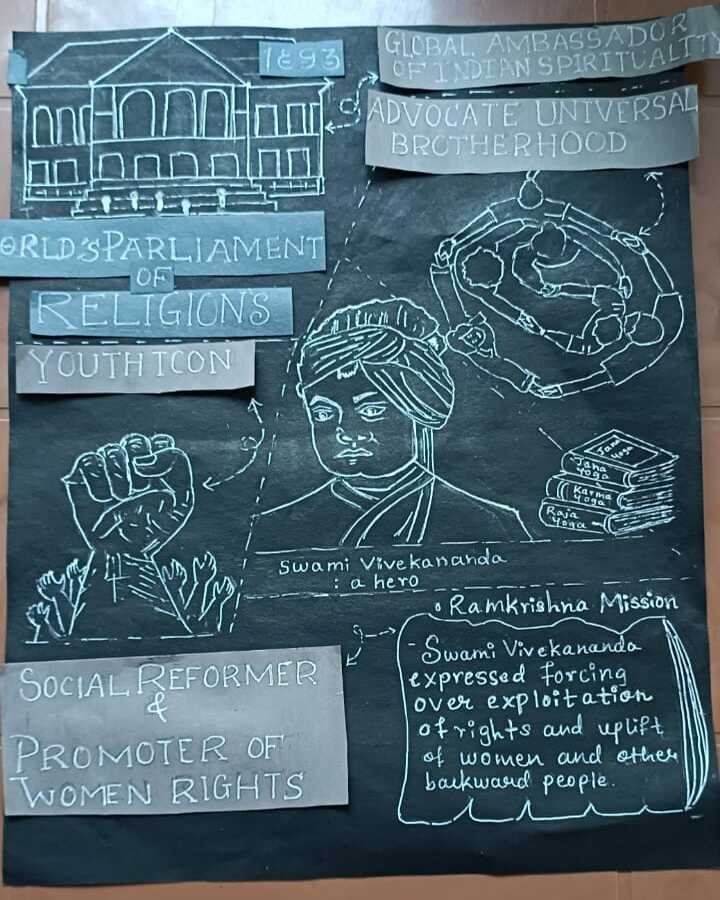 1893
GLOBAL AMBASSADOR
OF INDIAN SPIRITUALITY
ADVOCATE UNIVERSAL
BROTHERHOOD
ORLD'S PARLIAMENT
OF
RELIGIONS
YOUTH ICON
Jana
Yoga
Karma
Yoga
Raja
Yoga
Swami Vivekananda
: a hero
Ramkrishna Mission
- Swami Vivekananda
expressed forcing
over exploitation
of rights and uplift
of women and other
backward people.
SOCIAL REFORMER
&
PROMOTER OF
WOMEN RIGHTS